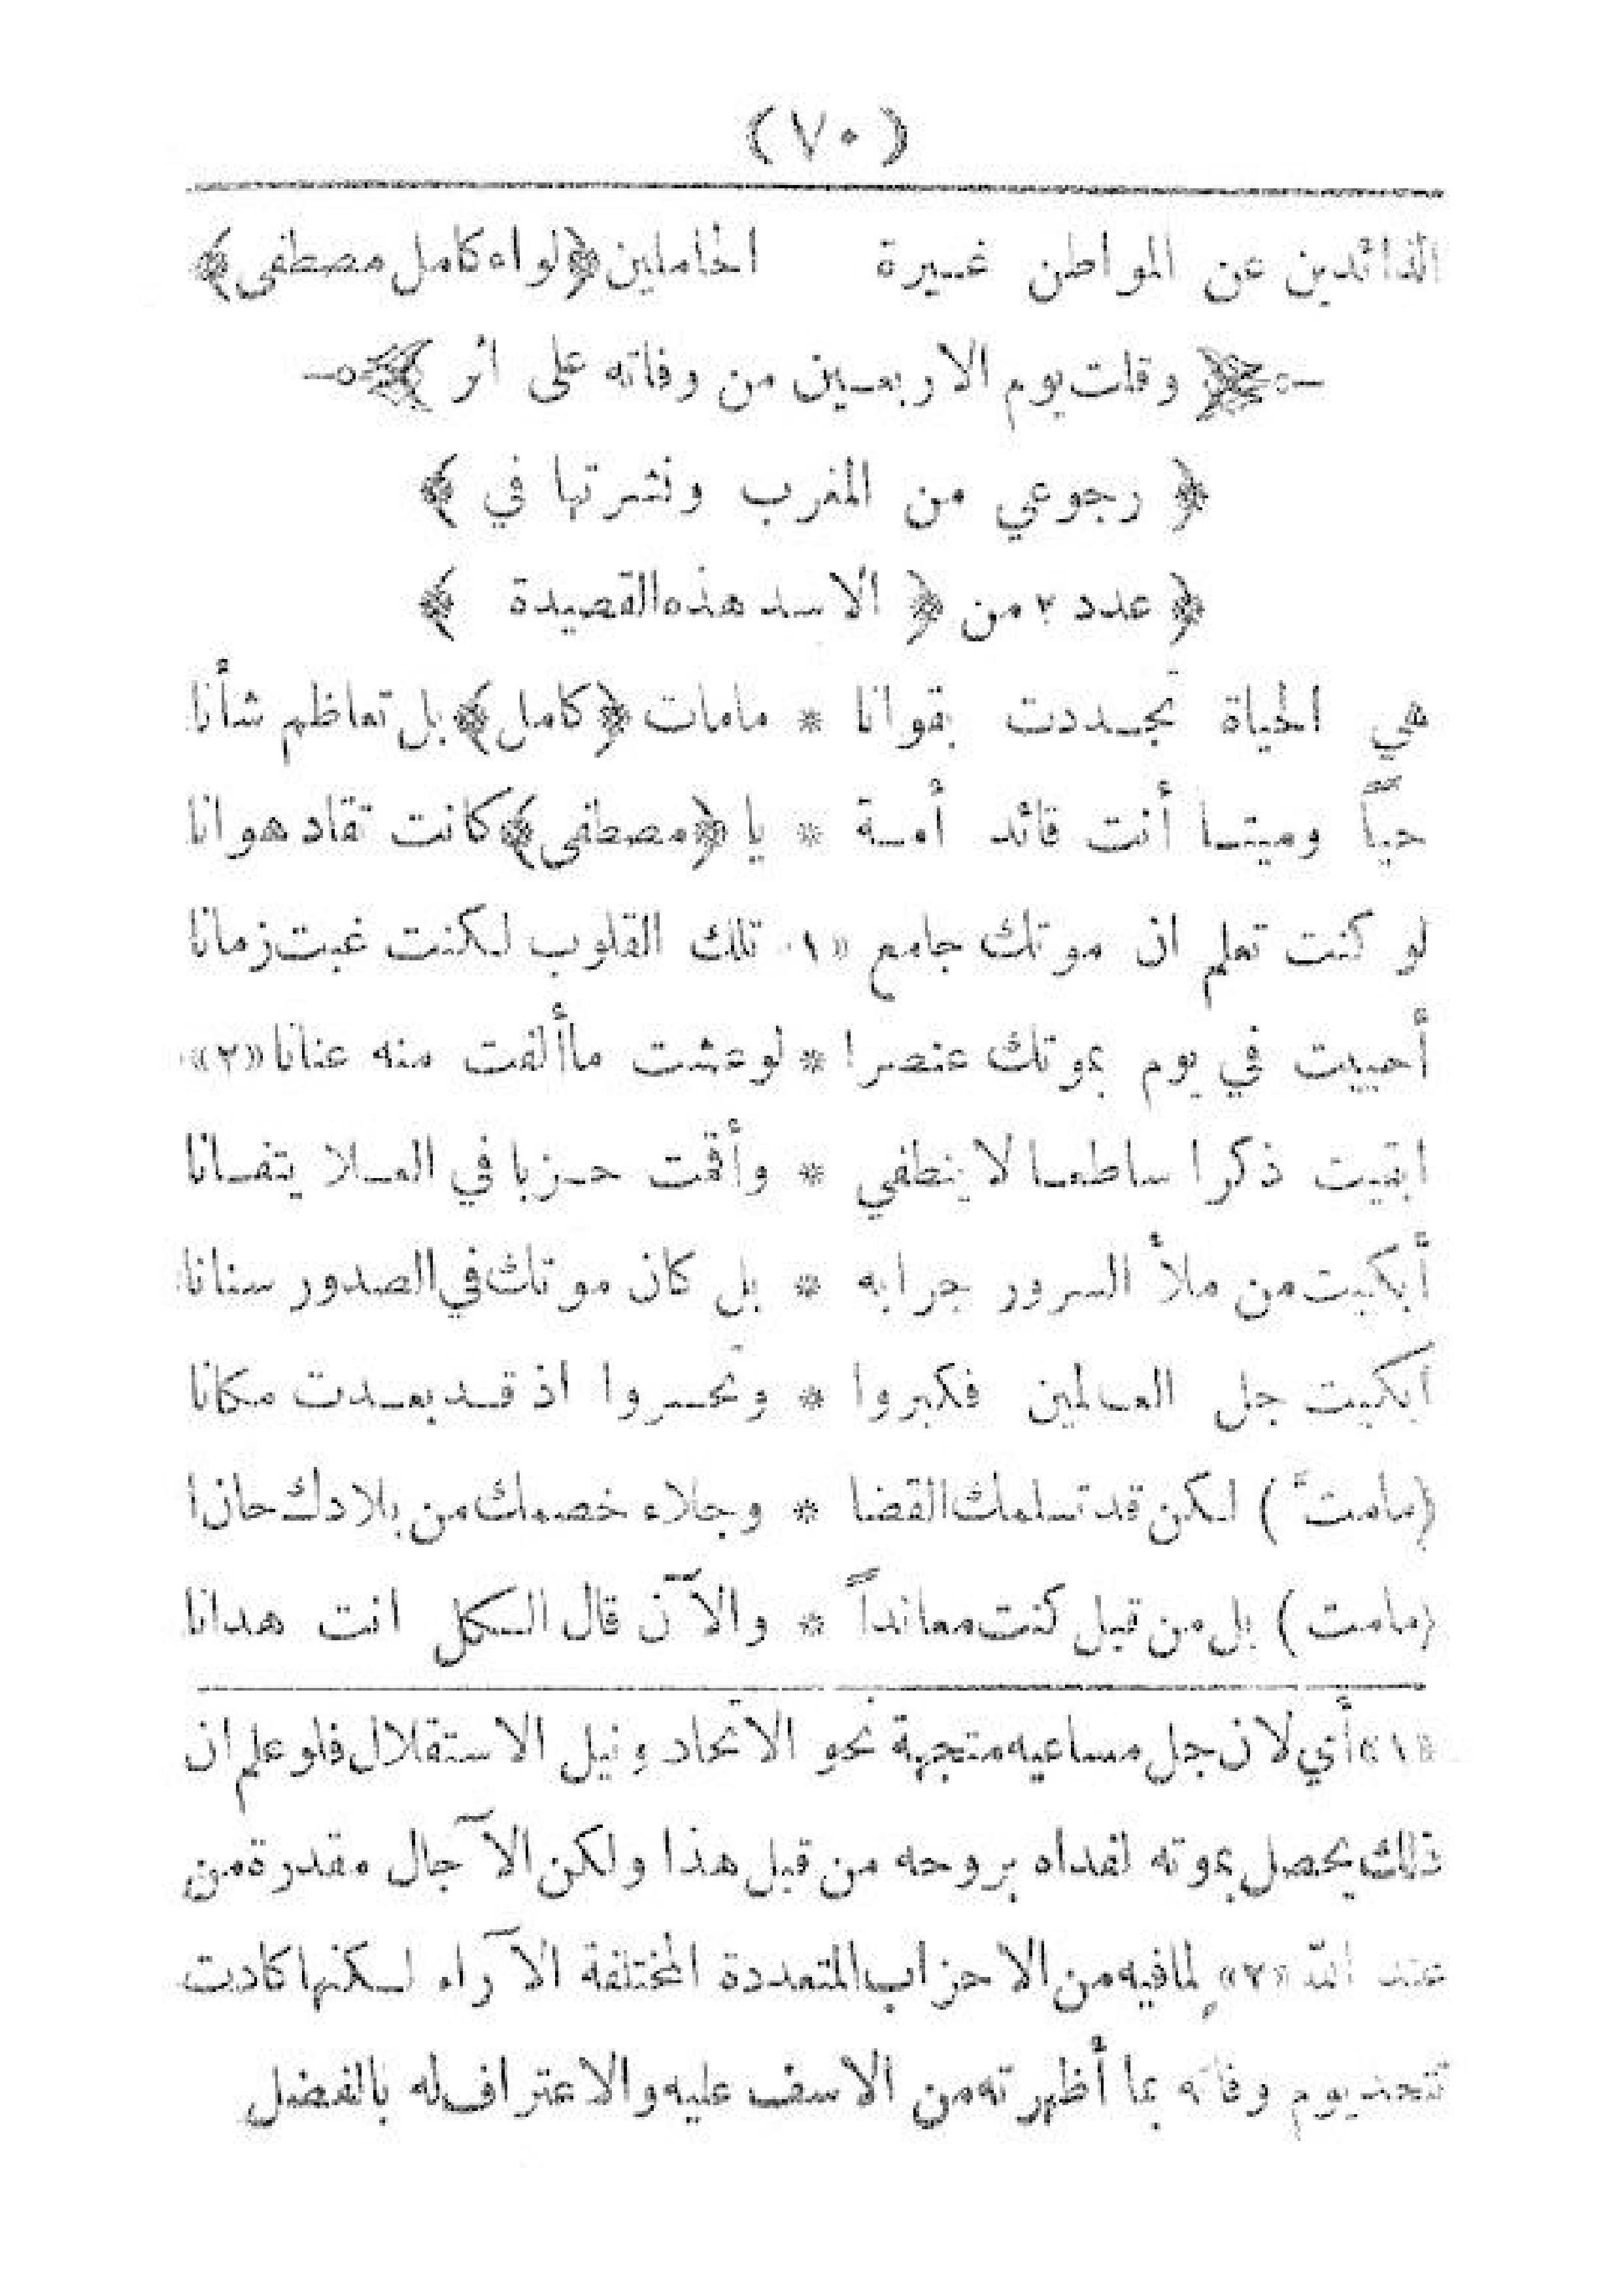 (٧٠)
الذائدين عن المواطن غيرة الحاملين ﴿لواء كامل مصطفى﴾
﴿ وقلت يوم الاربعين من وفاته على أثر ﴾
﴿ رجوعي من المغرب ونشرتها في ﴾
﴿ عدد ٢ من ﴿ الاسد هذه القصيدة ﴾
هي الحياة تجددت بقوانا * مامات ﴿كامل﴾ بل تعاظم شأنا
حيّاً وميتا أنت قائد أمة * يا ﴿مصطفى﴾ كانت تقاد هوانا
لو كنت تعلم ان موتك جامع «١» تلك القلوب لكنت غبت زمانا
أحييت في يوم بموتك عنصرا * لو عشت ماألفت منه عنانا «٢»
ابقيت ذكرا ساطعا لا ينطفي * وأقمت حزبا في العلا يتفانا
أبكيت من ملأ السرور جرابه * بل كان موتك في الصدور سنانا
ابكيت جل العالمين فكبروا * وتحسروا اذ قد بعدت مكانا
(مامتَّ) لكن قد تسلمك القضا * وجلاء خصمك من بلادك حانا
(مامت) بل من قبل كنت معانداً * والآن قال الكل انت هدانا
«١» أي لان جل مساعيه متجهة نحو الاتحاد ونيل الاستقلال فلو علم ان
ذلك يحصل بموته لفداه بروحه من قبل هذا ولكن الآجال مقدرة من
عند الله «٢» لِمافيه من الاحزاب المتعددة المختلفة الآراء لكنها كادت
تتحد يوم وفاته بما أظهرته من الاسف عليه والاعتراف له بالفضل